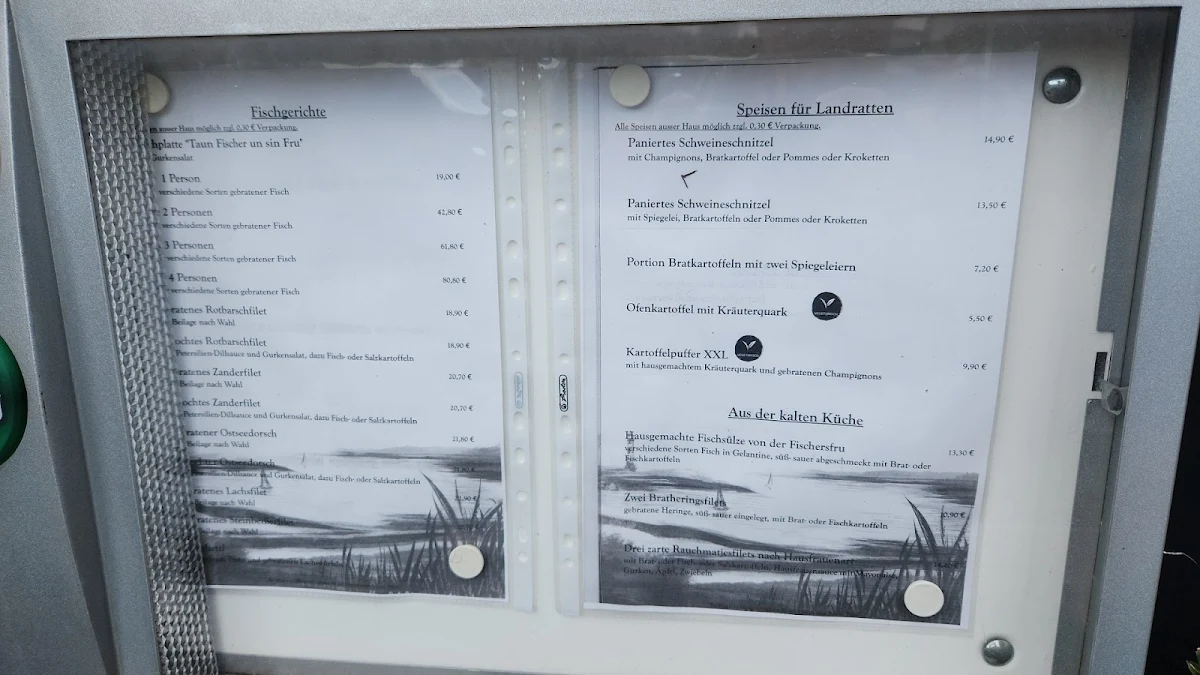 Fischgerichte
ausser Haus möglich zzgl. 0,30 € Verpackung.
"Taun Fischer un sin Fru"
Gurkensalat
1 Person 19,00 €
verschiedene Sorten gebratener Fisch
2 Personen 42,80 €
verschiedene Sorten gebratener Fisch
3 Personen 61,80 €
verschiedene Sorten gebratener Fisch
4 Personen 80,80 €
verschiedene Sorten gebratener Fisch
Rotbarschfilet 18,90 €
Beilage nach Wahl
Rotbarschfilet 18,90 €
Petersilien-Dillsauce und Gurkensalat, dazu Fisch- oder Salzkartoffeln
Zanderfilet 20,70 €
Beilage nach Wahl
Zanderfilet 20,70 €
Petersilien-Dillsauce und Gurkensalat, dazu Fisch- oder Salzkartoffeln
Ostseedorsch 21,80 €
Beilage nach Wahl
Ostseedorsch
Petersilien-Dillsauce und Gurkensalat, dazu Fisch- oder Salzkartoffeln
Lachsfilet
Beilage nach Wahl
Beilage nach Wahl
Speisen für Landratten
Alle Speisen ausser Haus möglich zzgl. 0,30 € Verpackung.
Paniertes Schweineschnitzel 14,90 €
mit Champignons, Bratkartoffel oder Pommes oder Kroketten
Paniertes Schweineschnitzel 13,50 €
mit Spiegelei, Bratkartoffeln oder Pommes oder Kroketten
Portion Bratkartoffeln mit zwei Spiegeleiern 7,20 €
Ofenkartoffel mit Kräuterquark 5,50 €
Kartoffelpuffer XXL 9,90 €
mit hausgemachtem Kräuterquark und gebratenen Champignons
Aus der kalten Küche
Hausgemachte Fischsülze von der Fischersfru 13,30 €
verschiedene Sorten Fisch in Gelantine, süß- sauer abgeschmeckt mit Brat- oder
Fischkartoffeln
Zwei Bratheringsfilets
gebratene Heringe, süß- sauer eingelegt, mit Brat- oder Fischkartoffeln
Drei zarte Rauchmatjesfilets nach Hausfrauenart
mit Brat- oder Fisch- oder Salzkartoffeln, Hausfrauensauce mit Mayonaise,
Gurken, Apfel, Zwiebeln